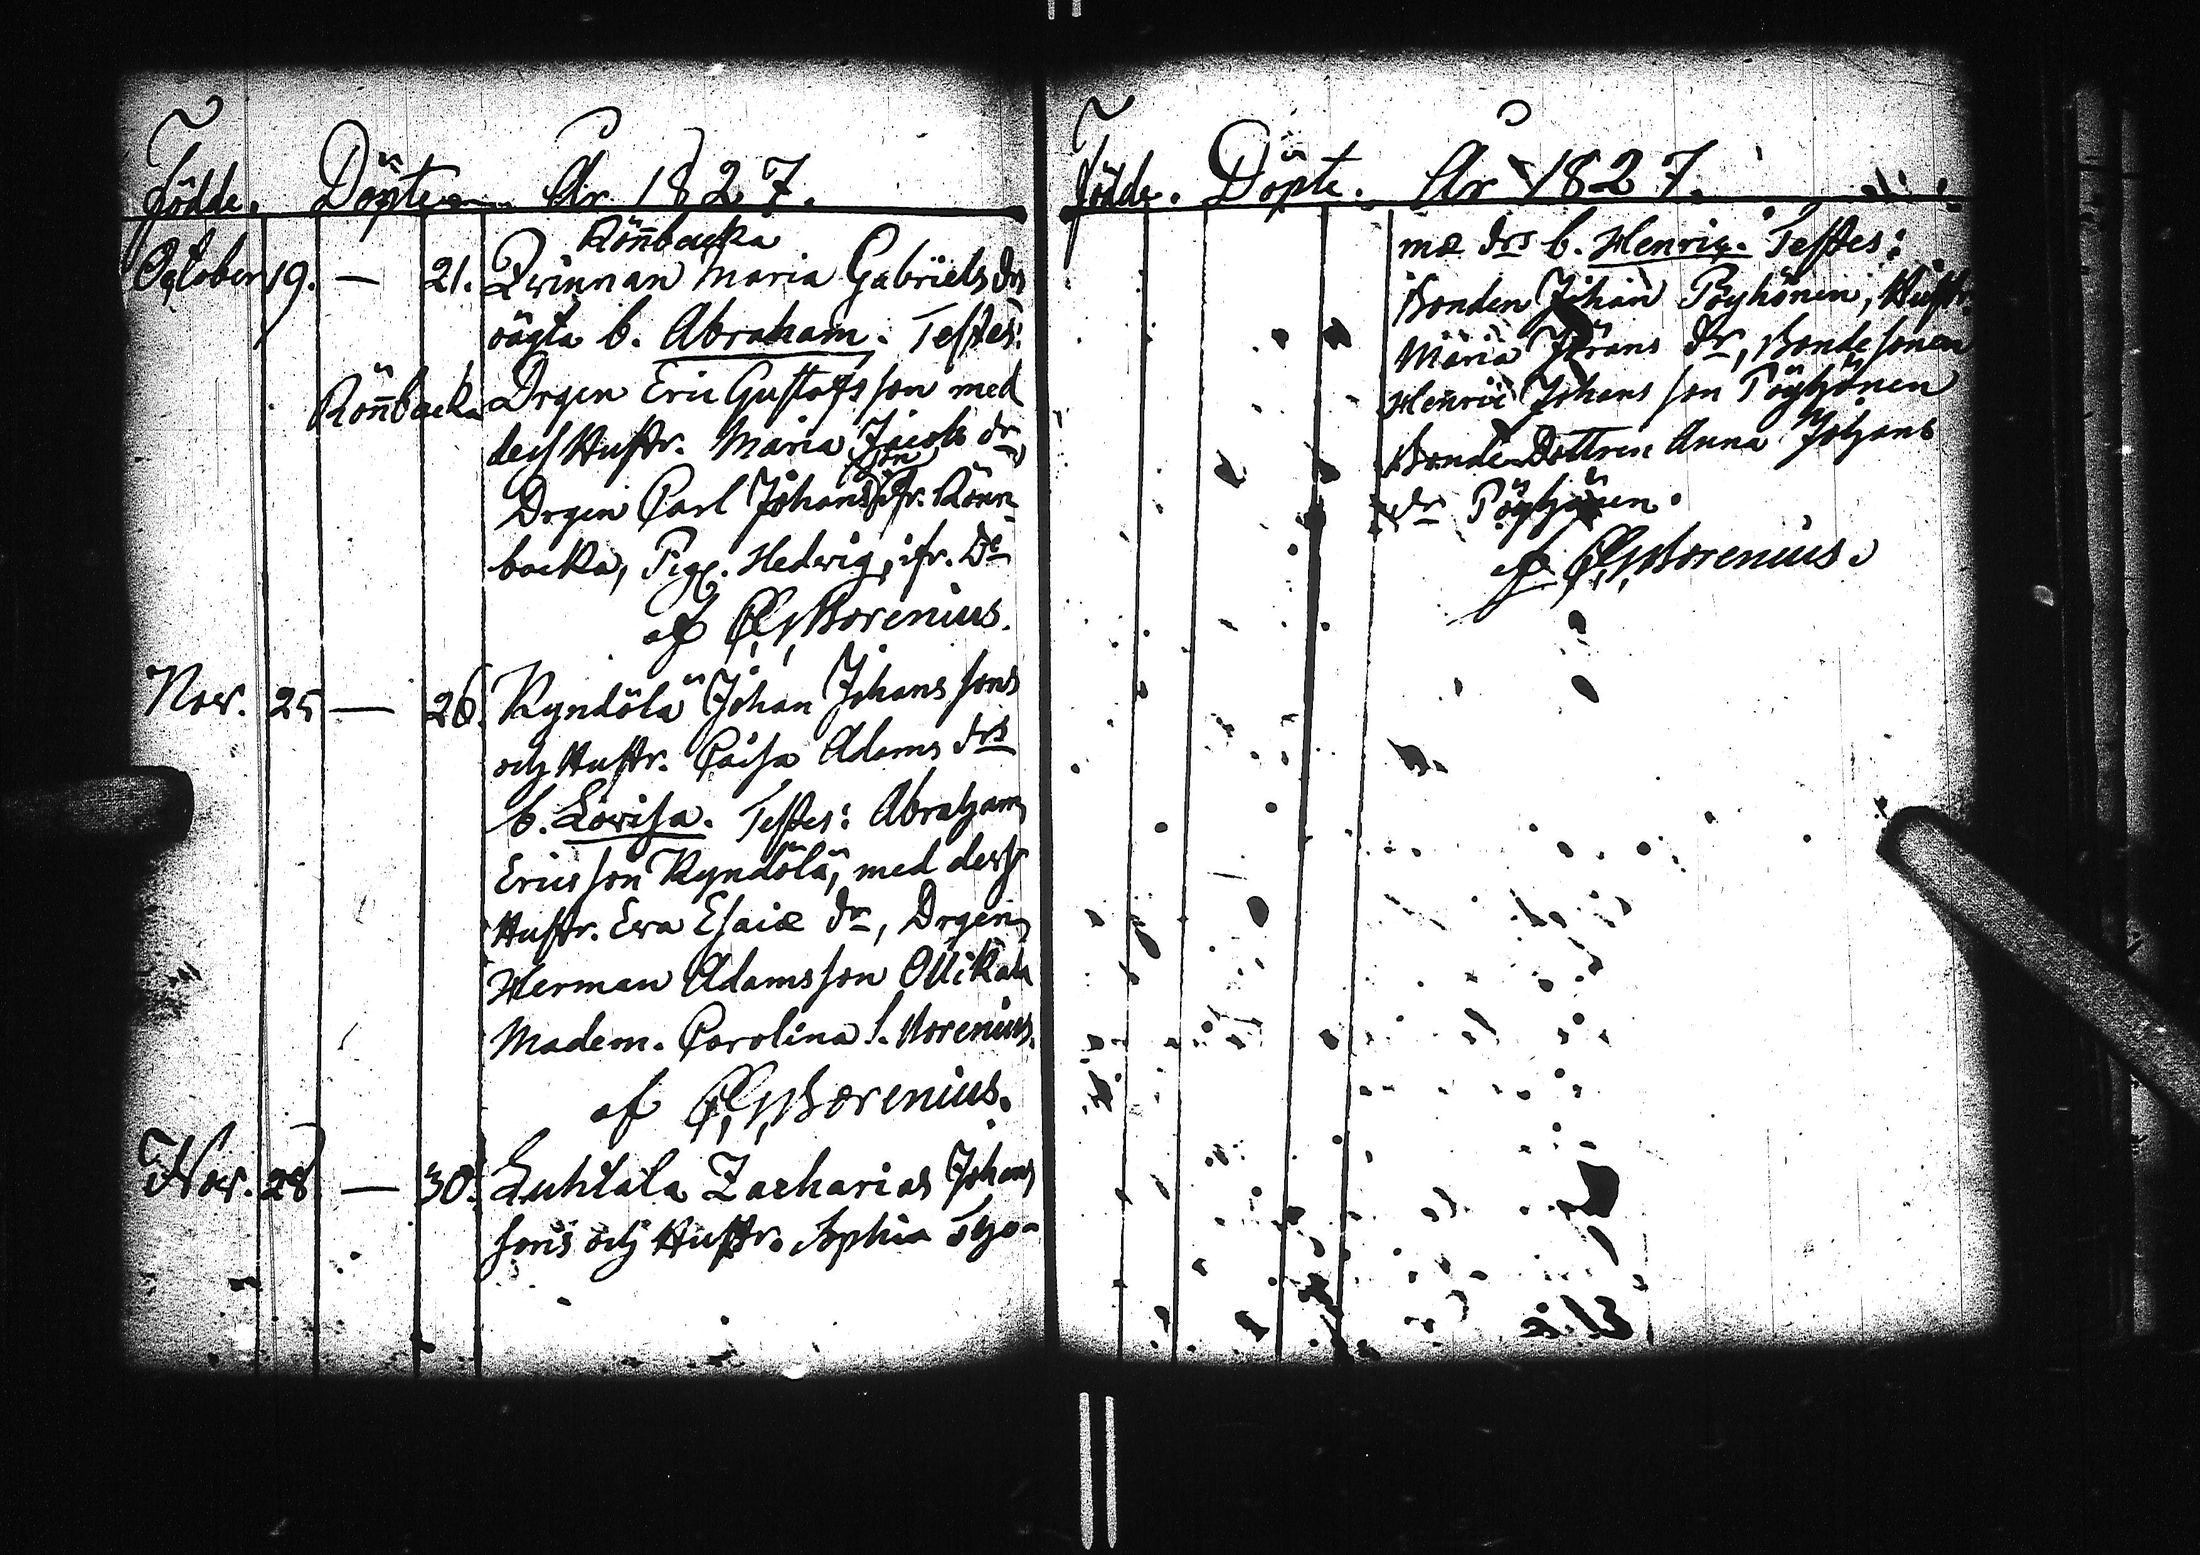 Födde. Döpte År 1827.
Rönbacka
October 19. — 21. Qvinnan Maria Gabriels drs
oägta b. Abraham. Testes:
Rönbacka Drgen Eric Gustafsson med
dess Hustr. Maria Jacobs dr,
Drgen Carl Johansson ifr. Rönn-
backa, Pig. Hedwig, ifr. Do
af Borenius.
Nov. 25 — 26. Kyndölä Johan Johanssons
och Hustr. Caisa Adams drs
b. Lovisa. Testes: Abraham
Ericsson Kyndölä, med dess
Hustr. Eva Esaiæ dr, Drgen
Herman Adamsson Ollikala
Madem. Carolina S. Borenius.
af Borenius.
Nov. 28 — 30. Luhtala Zacharias Johans
sons och Hustr. Sophia Tho-
Födde. Döpte. År 1827.
mæ drs b. Henric. Testes:
Bonden Johan Pöyhönen, Hustr.
Maria Jörans dr, Bondesonen
Henric Johansson Pöyhönen
Bonde Dottren Anna Johans
dr Pöyhönen.
af Borenius.